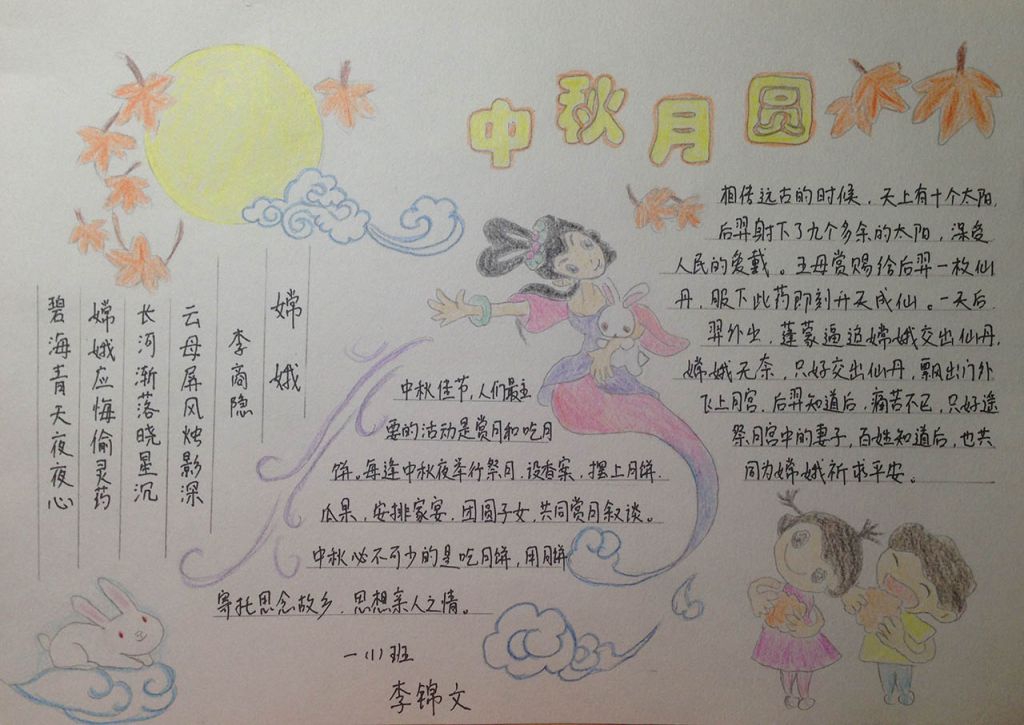 中秋月圆
嫦娥
李商隐
云母屏风烛影深
长河渐落晓星沉
嫦娥应悔偷灵药
碧海青天夜夜心
相传远古的时候，天上有十个太阳，
后羿射下了九个多余的太阳，深受
人民的爱戴。王母赏赐给后羿一枚仙
丹，服下此药即刻升天成仙。一天后
羿外出，蓬蒙逼迫嫦娥交出仙丹，
嫦娥无奈，只好交出仙丹，飘出门外
飞上月宫，后羿知道后，痛苦不已，只好遥
祭月宫中的妻子，百姓知道后，也共
同为嫦娥祈求平安。
中秋佳节，人们最主
要的活动是赏月和吃月
饼。每逢中秋夜举行祭月，设香案，摆上月饼.
瓜果，安排家宴，团圆子女，共同赏月叙谈。
中秋必不可少的是吃月饼，用月饼
寄托思念故乡，思想亲人之情。
一(1)班
李锦文